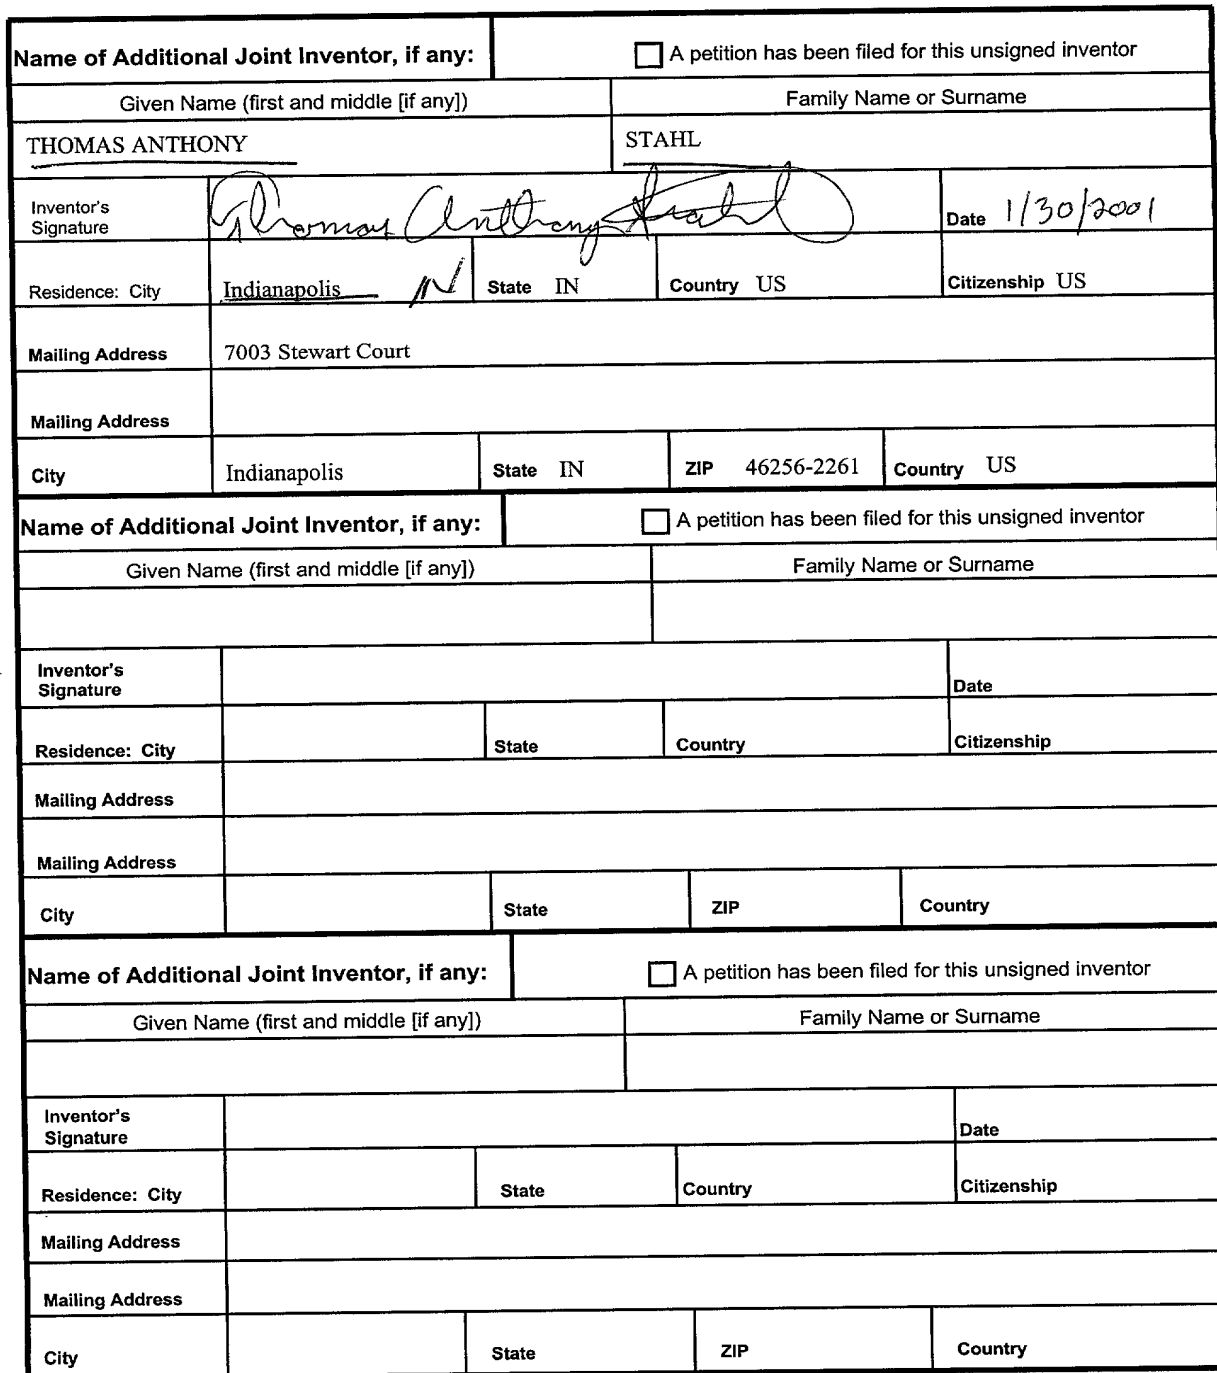 Name of Additional Joint Inventor, if any: A petition has been filed for this unsigned inventor
Given Name (first and middle [if any]) Family Name or Surname
THOMAS ANTHONY STAHL
Inventor's
Signature Thomas Anthony Stahl Date 1/30/2001
Residence: City Indianapolis IN State IN Country US Citizenship US
Mailing Address 7003 Stewart Court
Mailing Address
City Indianapolis State IN ZIP 46256-2261 Country US
Name of Additional Joint Inventor, if any: A petition has been filed for this unsigned inventor
Given Name (first and middle [if any]) Family Name or Surname
Inventor's
Signature Date
Residence: City State Country Citizenship
Mailing Address
Mailing Address
City State ZIP Country
Name of Additional Joint Inventor, if any: A petition has been filed for this unsigned inventor
Given Name (first and middle [if any]) Family Name or Surname
Inventor's
Signature Date
Residence: City State Country Citizenship
Mailing Address
Mailing Address
City State ZIP Country